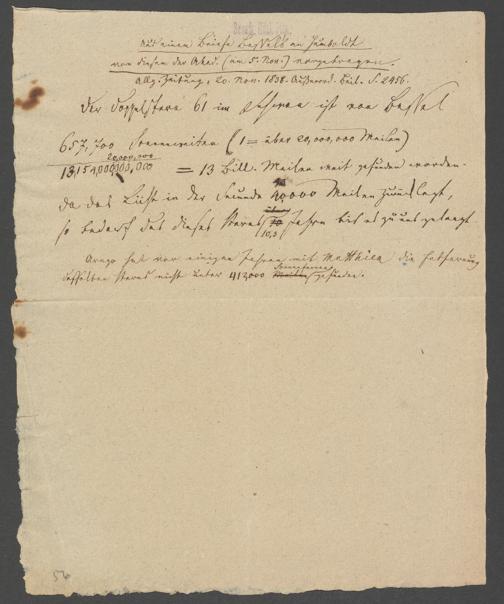 Aus einem Briefe Bessels an Humboldt
von diesem der Akad. (am 5. Nov.) vorgetragen.
Allg. Zeitung, 20. Nov. 1838. Ausserord. Beil. S. 2456.
Der Doppelstern 61 im Schwan ist von Bessel
657,700 Sonnenweiten (1 = über 20,000,000 Meilen)
20,000,000
13,154,000,000,000 = 13 Bill. Meilen weit gefunden worden.
da das Licht in der Secunde 40,000 Meilen zurücklegt,
so bedarf das dieses Sterns über 10 Jahre bis es zu uns gelangt
10,3
Arago hat vor einigen Jahren mit Matthieu die Entfernung
desselben Sterns nicht unter 412000 Meilen gefunden.
56